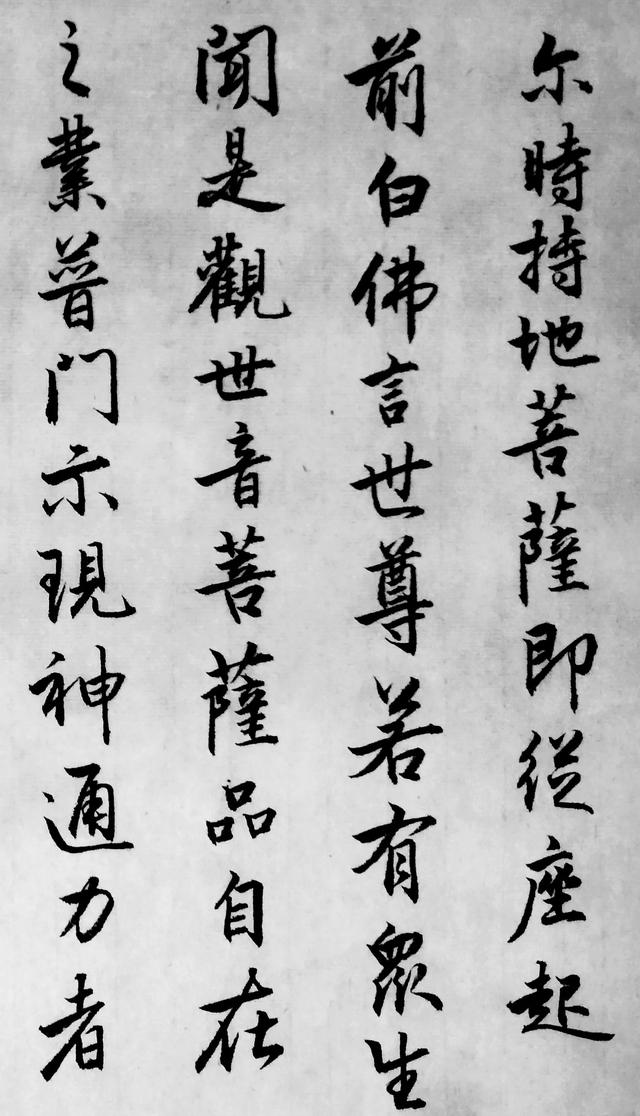 尓時持地菩薩即從座起
前白佛言世尊若有衆生
聞是觀世音菩薩品自在
之業普門示現神通力者